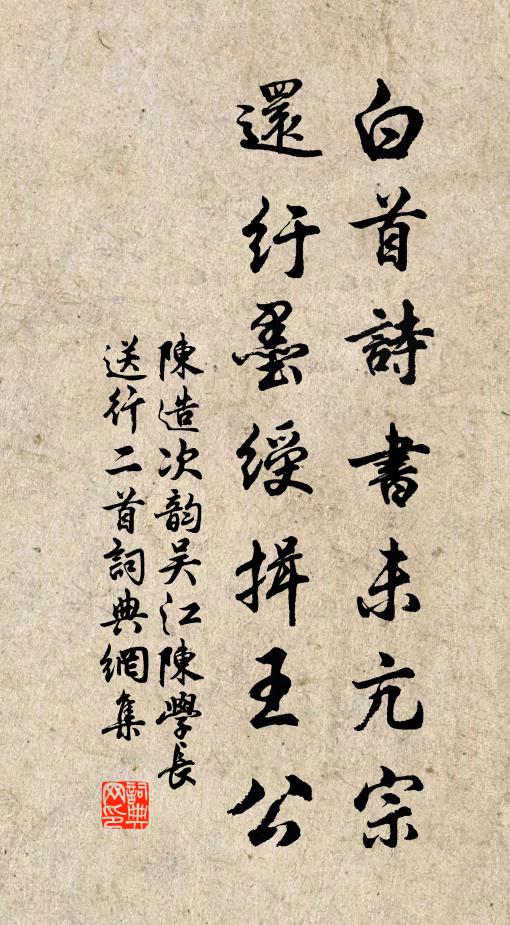 白首詩書未亢宗
還紆墨綬揖王公
陳造次韵吴江陳學長
送行二首詞典網集
詞典网印